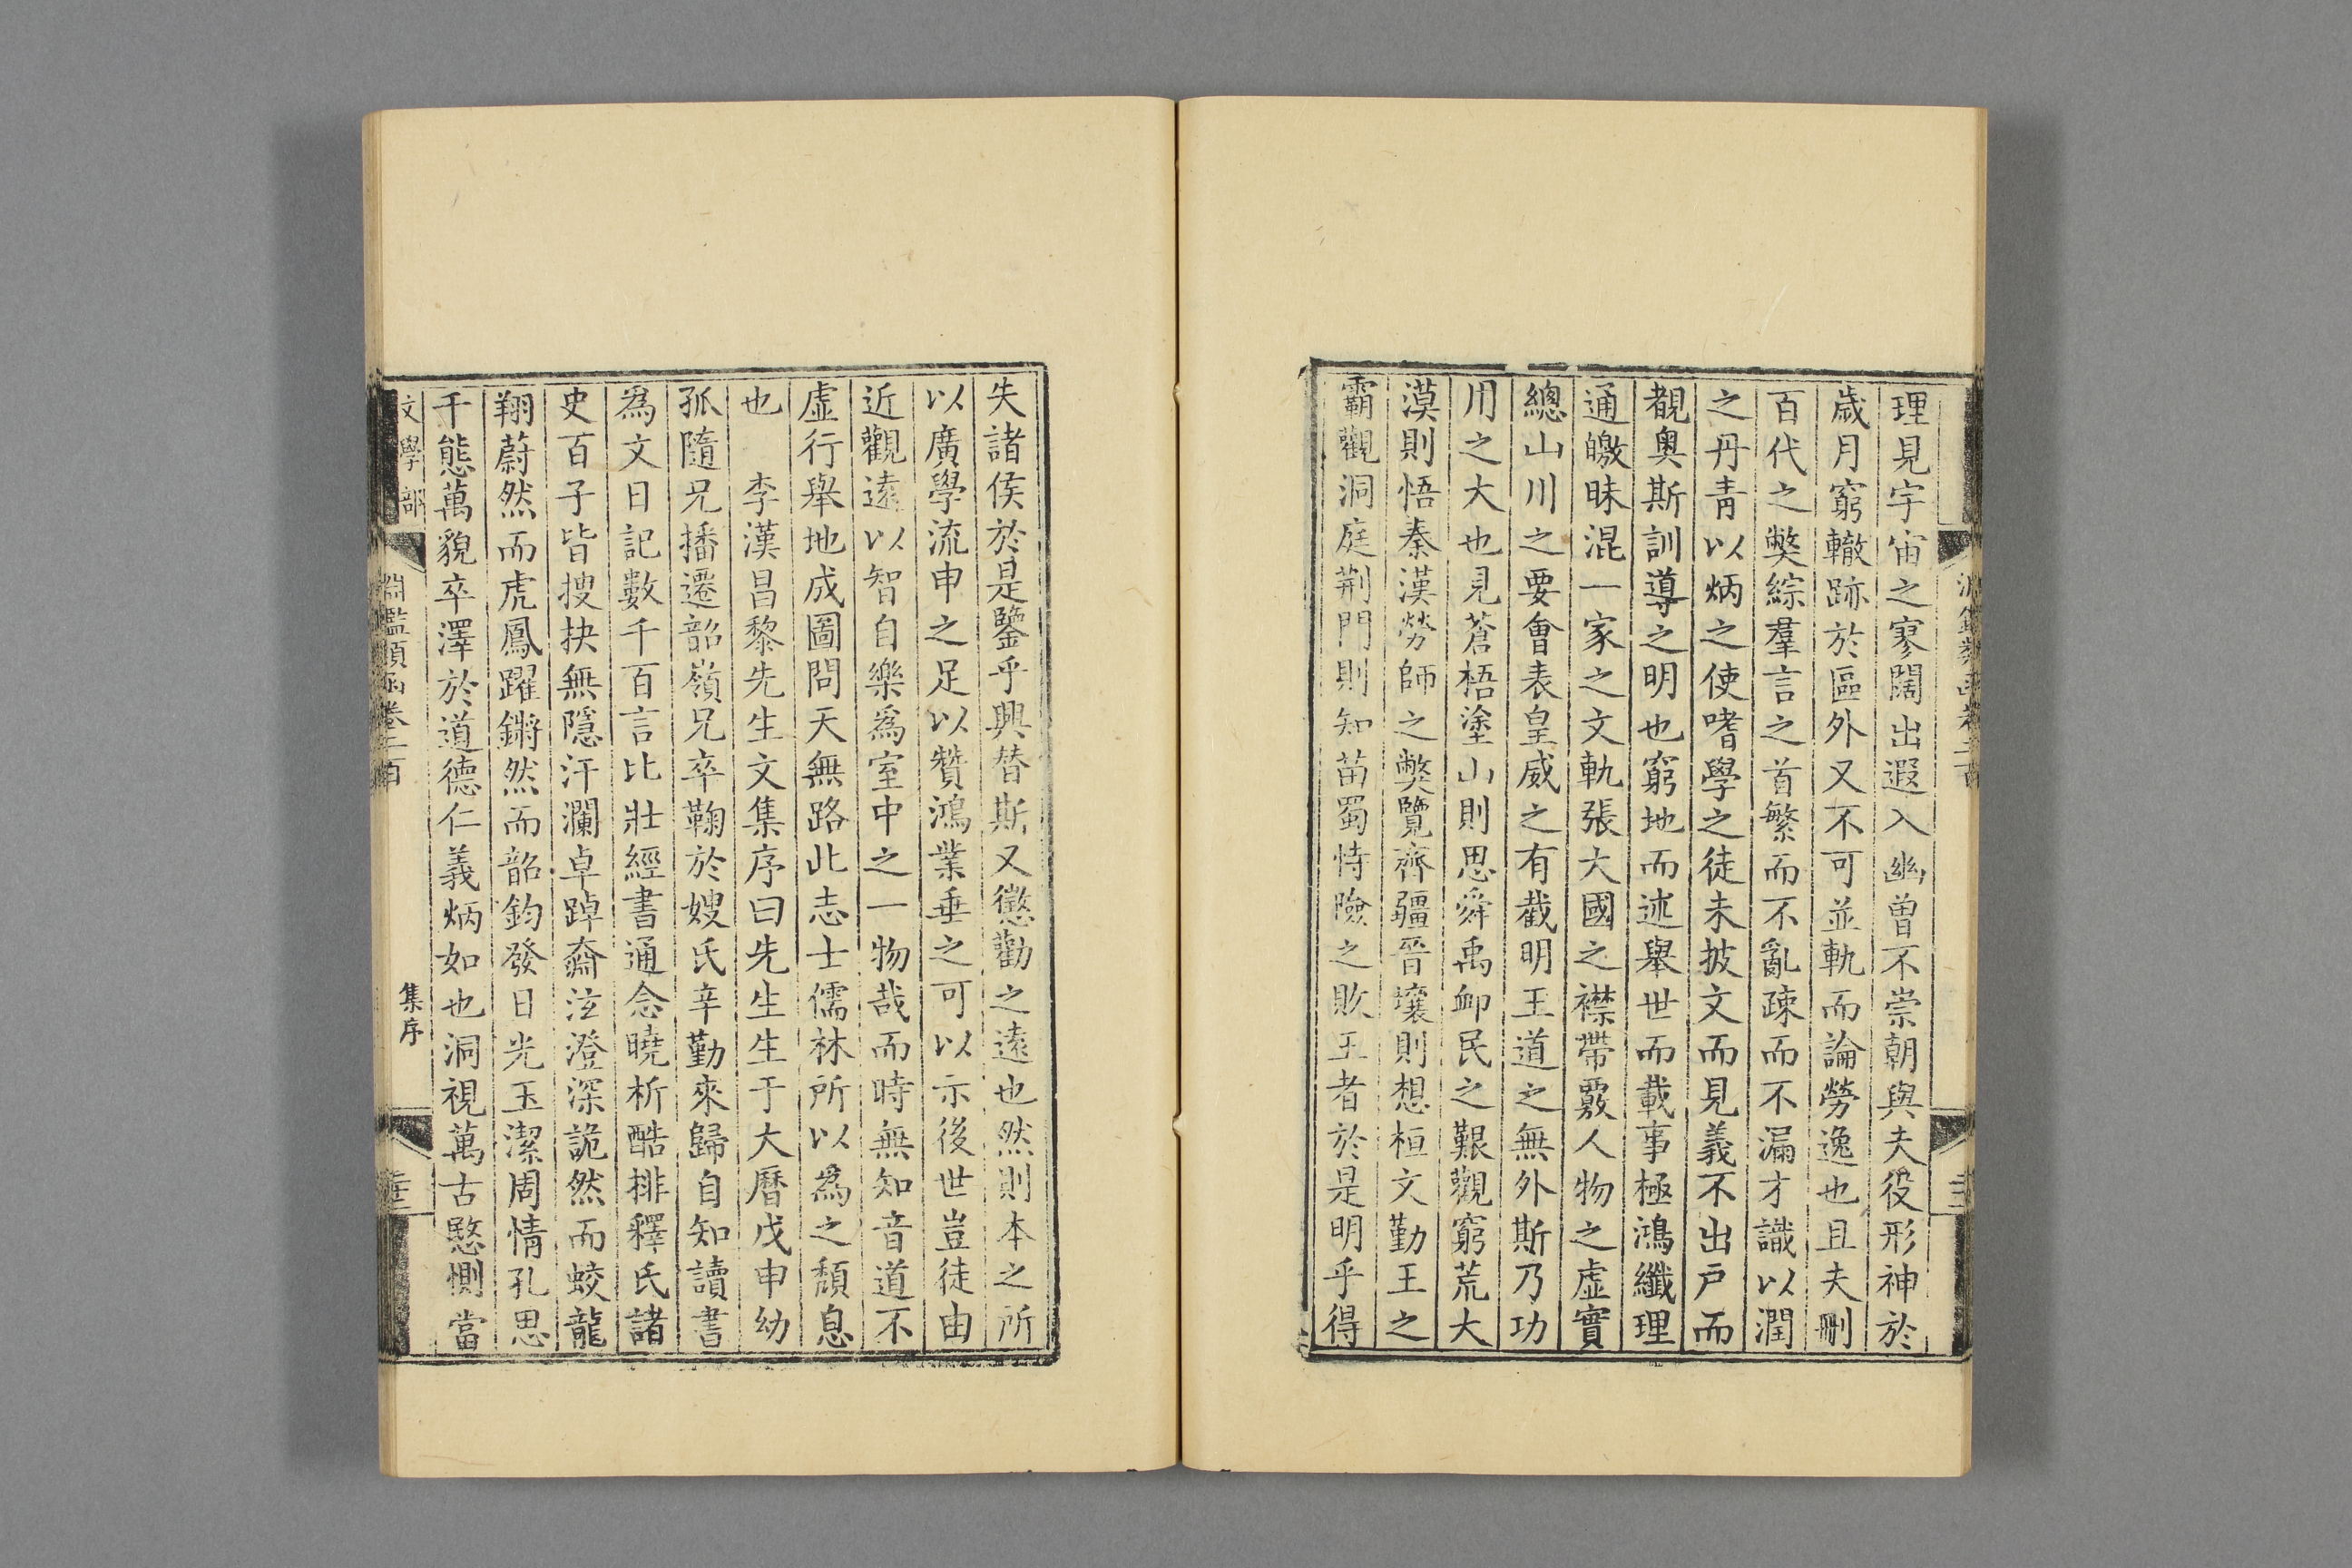 理見宇宙之寥闊出遐入幽曽不崇朝與夫役形神於
歲月窮轍跡於區外又不可並軌而論勞逸也且夫刪
百代之弊綜羣言之首繁而不亂疎而不漏才識以潤
之丹青以炳之使嗜學之徒未披文而見義不出戸而
覩奥斯訓導之明也窮地而述舉世而載事極鴻纖理
通皦昧混一家之文軌張大國之襟帶覈人物之虛實
總山川之要會表皇威之有截明王道之無外斯乃功
用之大也見蒼梧塗山則思舜禹卹民之艱觀窮荒大
漠則悟秦漢勞師之弊覽齊疆晉壤則想桓文勤王之
霸觀洞庭荆門則知苗蜀恃險之敗王者於是明乎得
失諸侯於是鑒乎興替斯又懲勸之遠也然則本之所
以廣學流申之足以贊鴻業垂之可以示後世豈徒由
近觀遠以智自樂爲室中之一物哉而時無知音道不
虛行舉地成圖問天無路此志士儒林所以爲之頽息
也　李漢昌黎先生文集序曰先生生于大曆戊申幼
孤隨兄播遷韶嶺兄卒鞠於嫂氏辛勤來歸自知讀書
爲文日記數千百言比壯經書通念曉析酷排釋氏諸
史百子皆搜抉無隱汗瀾卓踔奫泫澄深詭然而蛟龍
翔蔚然而虎鳳躍鏘然而韶鈞發日光玉潔周情孔思
千態萬貌卒澤於道德仁義炳如也洞視萬古愍惻當
文學部
淵鑑類函卷二百
集序